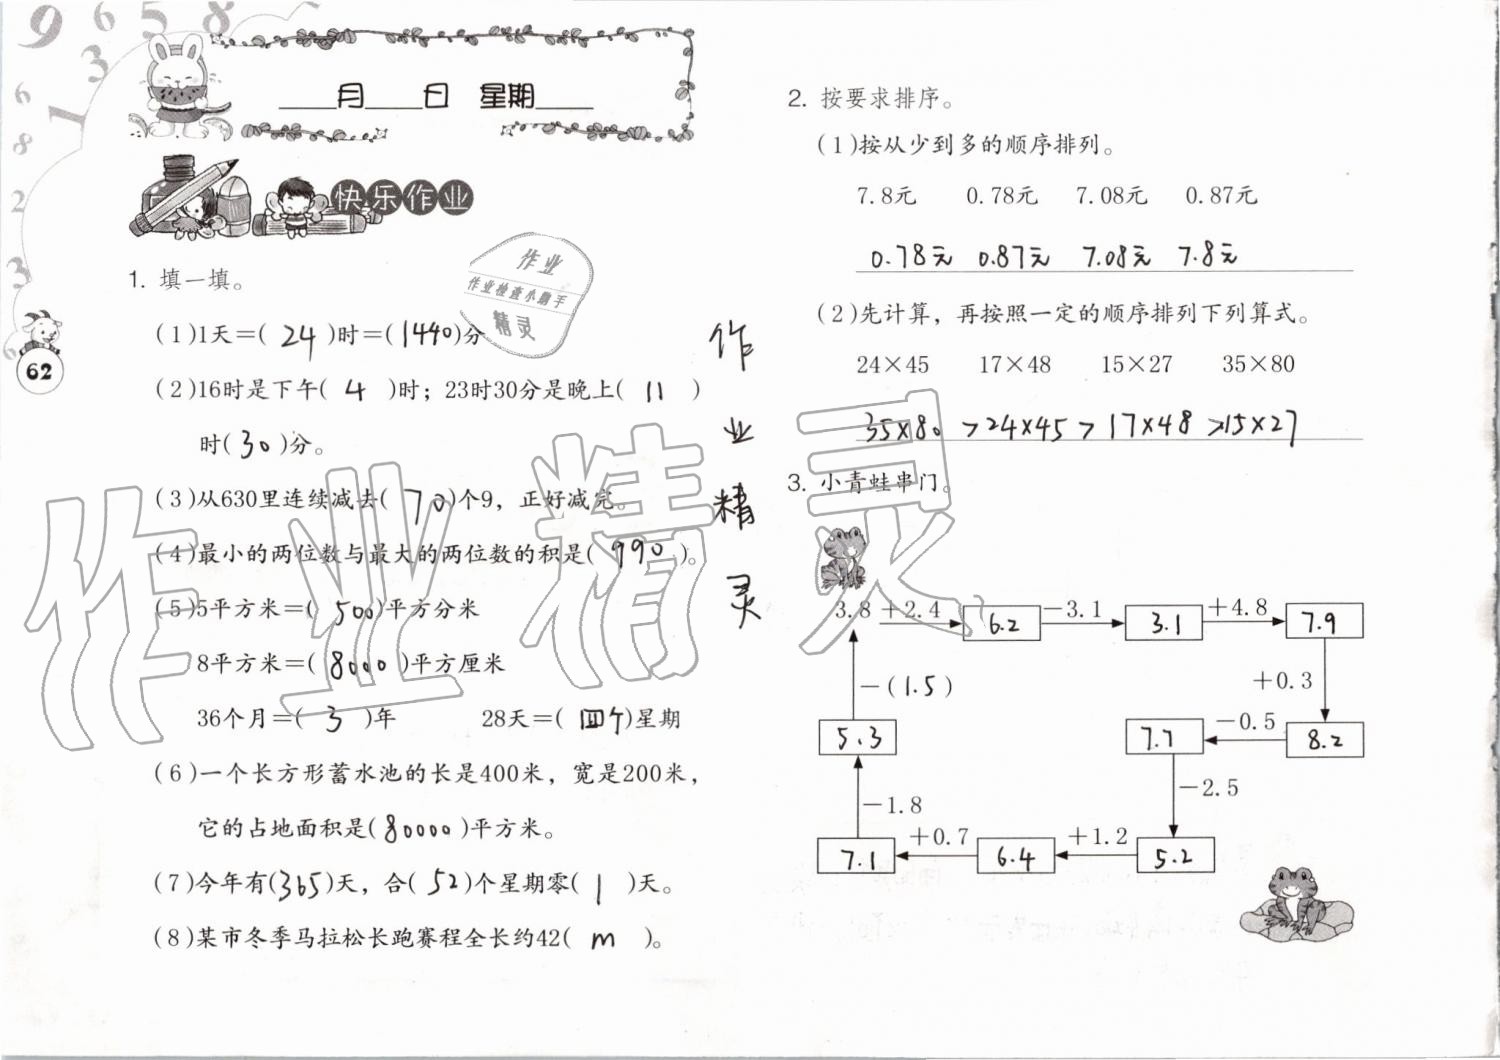 9 6 5 8
3
1
6
8
2
3
6
____月____日 星期____
快乐作业
作业
作业检查小帮手
精灵
62
1. 填一填。
(1)1天=( 24 )时=(1440)分
(2)16时是下午( 4 )时；23时30分是晚上( 11 )
时( 30 )分。
(3)从630里连续减去( 70 )个9，正好减完。
(4)最小的两位数与最大的两位数的积是( 990 )。
(5)5平方米=( 500 )平方分米
8平方米=( 8000 )平方厘米
36个月=( 3 )年 28天=( 四个 )星期
(6)一个长方形蓄水池的长是400米，宽是200米，
它的占地面积是( 80000 )平方米。
(7)今年有(365)天，合( 52 )个星期零( 1 )天。
(8)某市冬季马拉松长跑赛程全长约42( m )。
作
业
精
灵
作业精灵
2. 按要求排序。
(1)按从少到多的顺序排列。
7.8元 0.78元 7.08元 0.87元
0.78元 0.87元 7.08元 7.8元
(2)先计算，再按照一定的顺序排列下列算式。
24×45 17×48 15×27 35×80
35×80 >24×45> 17×48 >15×27
3. 小青蛙串门。
3.8 +2.4 6.2 -3.1 3.1 +4.8 7.9
+0.3
-(1.5)
5.3 7.7 -0.5 8.2
-2.5
-1.8
7.1 +0.7 6.4 +1.2 5.2